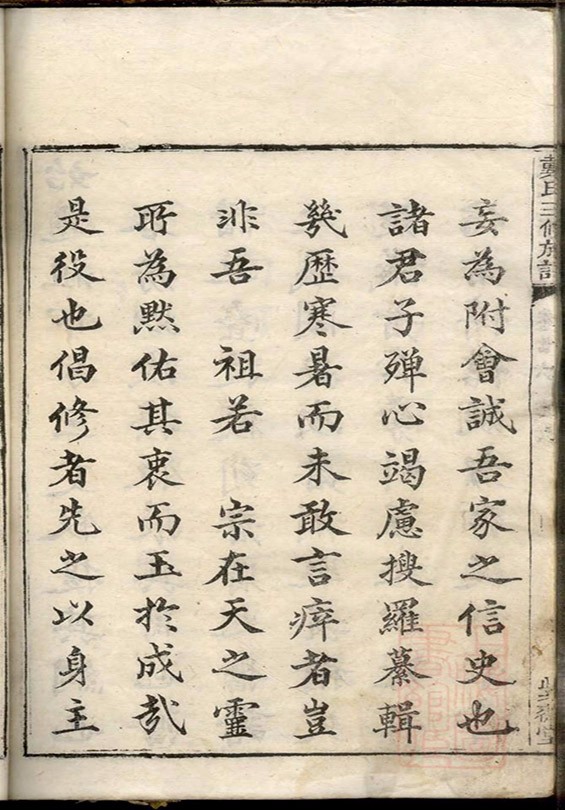 戴氏三修族譜
妄為附會誠吾家之信史也
諸君子殫心竭慮搜羅纂輯
幾歷寒暑而未敢言瘁者豈
非吾 祖若 宗在天之靈
所為默佑其衷而玉於成哉
是役也倡修者先之以身主